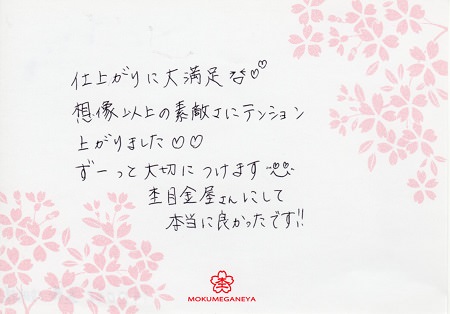 仕上がりに大満足です♡♡
想像以上の素敵さにテンション
上がりました♡♡
ずーっと大切につけます
杢目金屋さんにして
本当に良かったです!!
杢
MOKUMEGANEYA